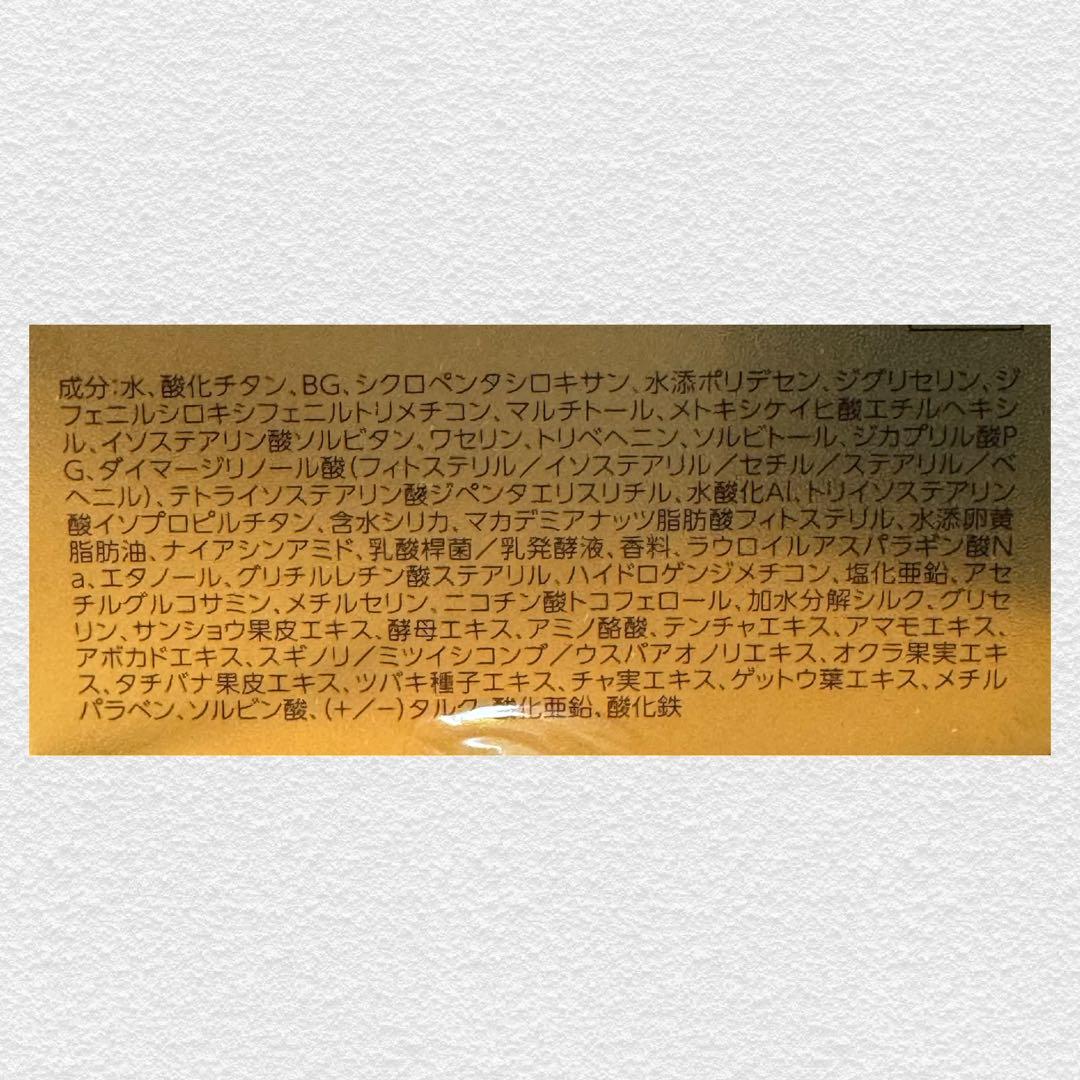 成分:水、酸化チタン、BG、シクロペンタシロキサン、水添ポリデセン、ジグリセリン、ジ
フェニルシロキシフェニルトリメチコン、マルチトール、メトキシケイヒ酸エチルヘキシ
ル、イソステアリン酸ソルビタン、ワセリン、トリベヘニン、ソルビトール、ジカプリル酸P
G、ダイマージリノール酸(フィトステリル/イソステアリル/セチル/ステアリル/ベ
ヘニル)、テトライソステアリン酸ジペンタエリスリチル、水酸化Al、トリイソステアリン
酸イソプロピルチタン、含水シリカ、マカデミアナッツ脂肪酸フィトステリル、水添卵黄
脂肪油、ナイアシンアミド、乳酸桿菌/乳発酵液、香料、ラウロイルアスパラギン酸N
a、エタノール、グリチルレチン酸ステアリル、ハイドロゲンジメチコン、塩化亜鉛、アセ
チルグルコサミン、メチルセリン、ニコチン酸トコフェロール、加水分解シルク、グリセ
リン、サンショウ果皮エキス、酵母エキス、アミノ酪酸、テンチャエキス、アマモエキス、
アボカドエキス、スギノリ/ミツイシコンブ/ウスバアオノリエキス、オクラ果実エキ
ス、タチバナ果皮エキス、ツバキ種子エキス、チャ実エキス、ゲットウ葉エキス、メチル
パラベン、ソルビン酸、(+/−)タルク、酸化亜鉛、酸化鉄